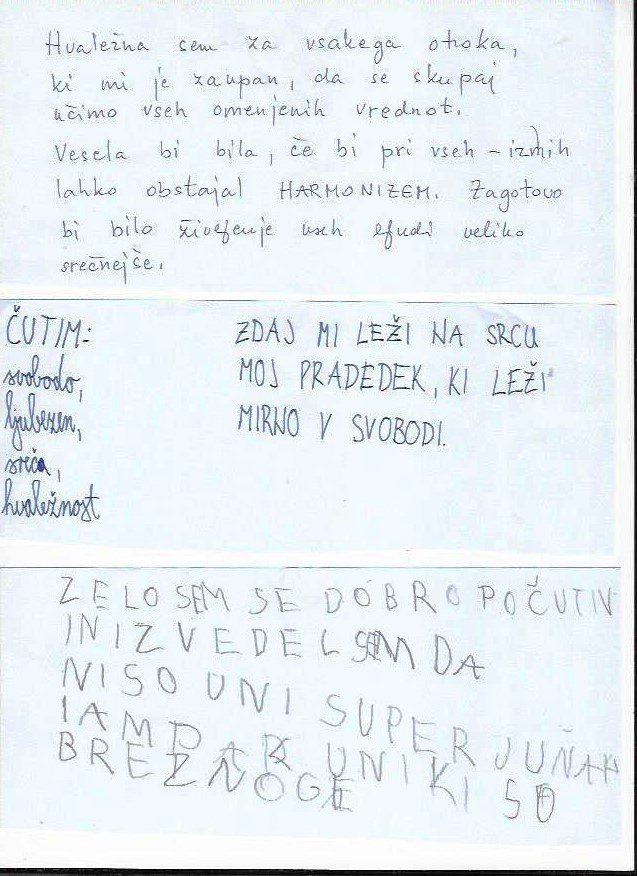 Hvaležna sem za vsakega otroka,
ki mi je zaupan, da se skupaj
učimo vseh omenjenih vrednot.
Vesela bi bila, če bi pri vseh -izmih
lahko obstajal HARMONIZEM. Zagotovo
bi bilo življenje vseh ljudi veliko
srečnejše.
ČUTIM:
svobodo,
ljubezen,
sreča,
hvaležnost
ZDAJ MI LEŽI NA SRCU
MOJ PRADEDEK, KI LEŽI
MIRNO V SVOBODI.
ZELO SEM SE DOBRO POČUTIV
IN IZVEDEL SEM DA
NISO UNI SUPER JUNAK
I AMPAK UNI KI SO
BREZ NOGE